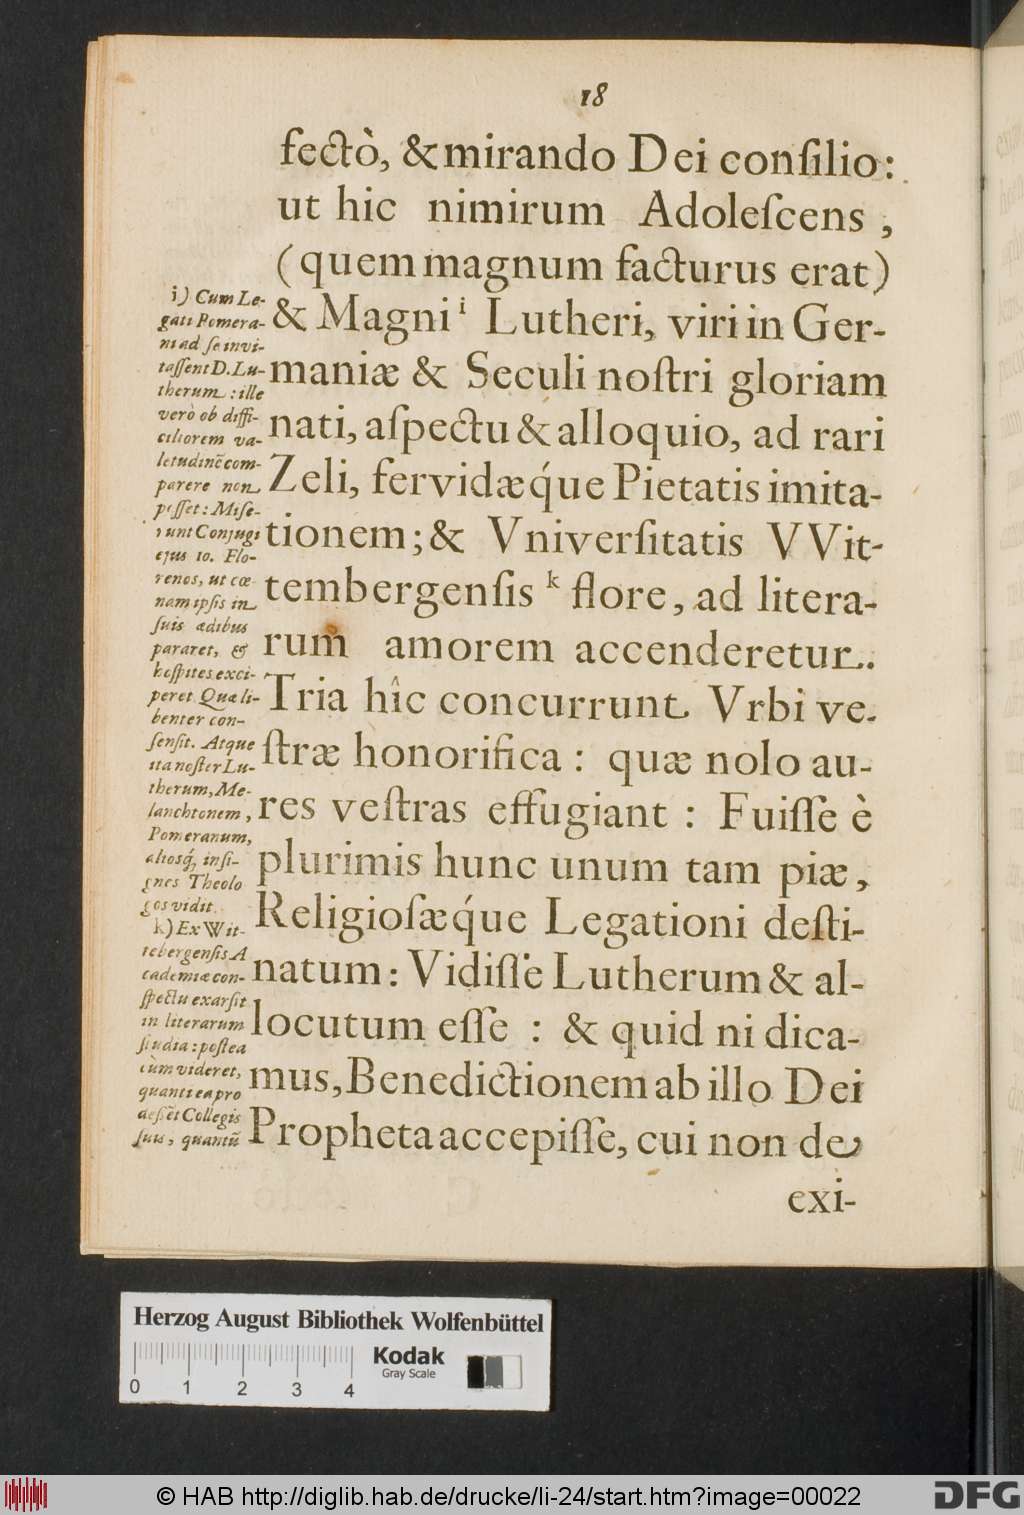 18
fectò, & mirando Dei conſilio:
ut hic nimirum Adoleſcens,
(quem magnum facturus erat)
& Magni i Lutheri, viri in Ger-
maniæ & Seculi noſtri gloriam
nati, aſpectu & alloquio, ad rari
Zeli, fervidæq́ue Pietatis imita-
tionem; & Vniverſitatis VVit-
tembergenſis k flore, ad litera-
rum amorem accenderetur.
Tria hîc concurrunt Vrbi ve-
ſtræ honorifica: quæ nolo au-
res veſtras effugiant: Fuiſſe è
plurimis hunc unum tam piæ,
Religioſæq́ue Legationi deſti-
natum: Vidiſſe Lutherum & al-
locutum eſſe: & quid ni dica-
mus, Benedictionem ab illo Dei
Propheta accepiſſe, cui non de
exi-
i) Cum Le-
gati Pomera-
ni ad ſe invi-
taſſent D. Lu-
therum: ille
verò ob diffi-
ciliorem va-
letudinē com-
parere non
poſſet: Miſe-
runt Conjugi
ejus 10. Flo-
renos, ut cœ-
nam ipſis in
ſuis ædibus
pararet, &
hoſpites exci-
peret. Quæ li-
benter con-
ſenſit. Atque
ita noſter Lu-
therum, Me-
lanchtonem,
Pomeranum,
aliosq́, inſi-
gnes Theolo
gos vidit.
k) Ex Wit-
tebergenſis A
cademiæ con-
ſpectu exarſit
in literarum
ſtudia: poſtea
cùm videret,
quanti ea pro
deſſēt Collegis
ſuis, quantū
Herzog August Bibliothek Wolfenbüttel
Kodak
Gray Scale
0 1 2 3 4
© HAB http://diglib.hab.de/drucke/li-24/start.htm?image=00022
DFG